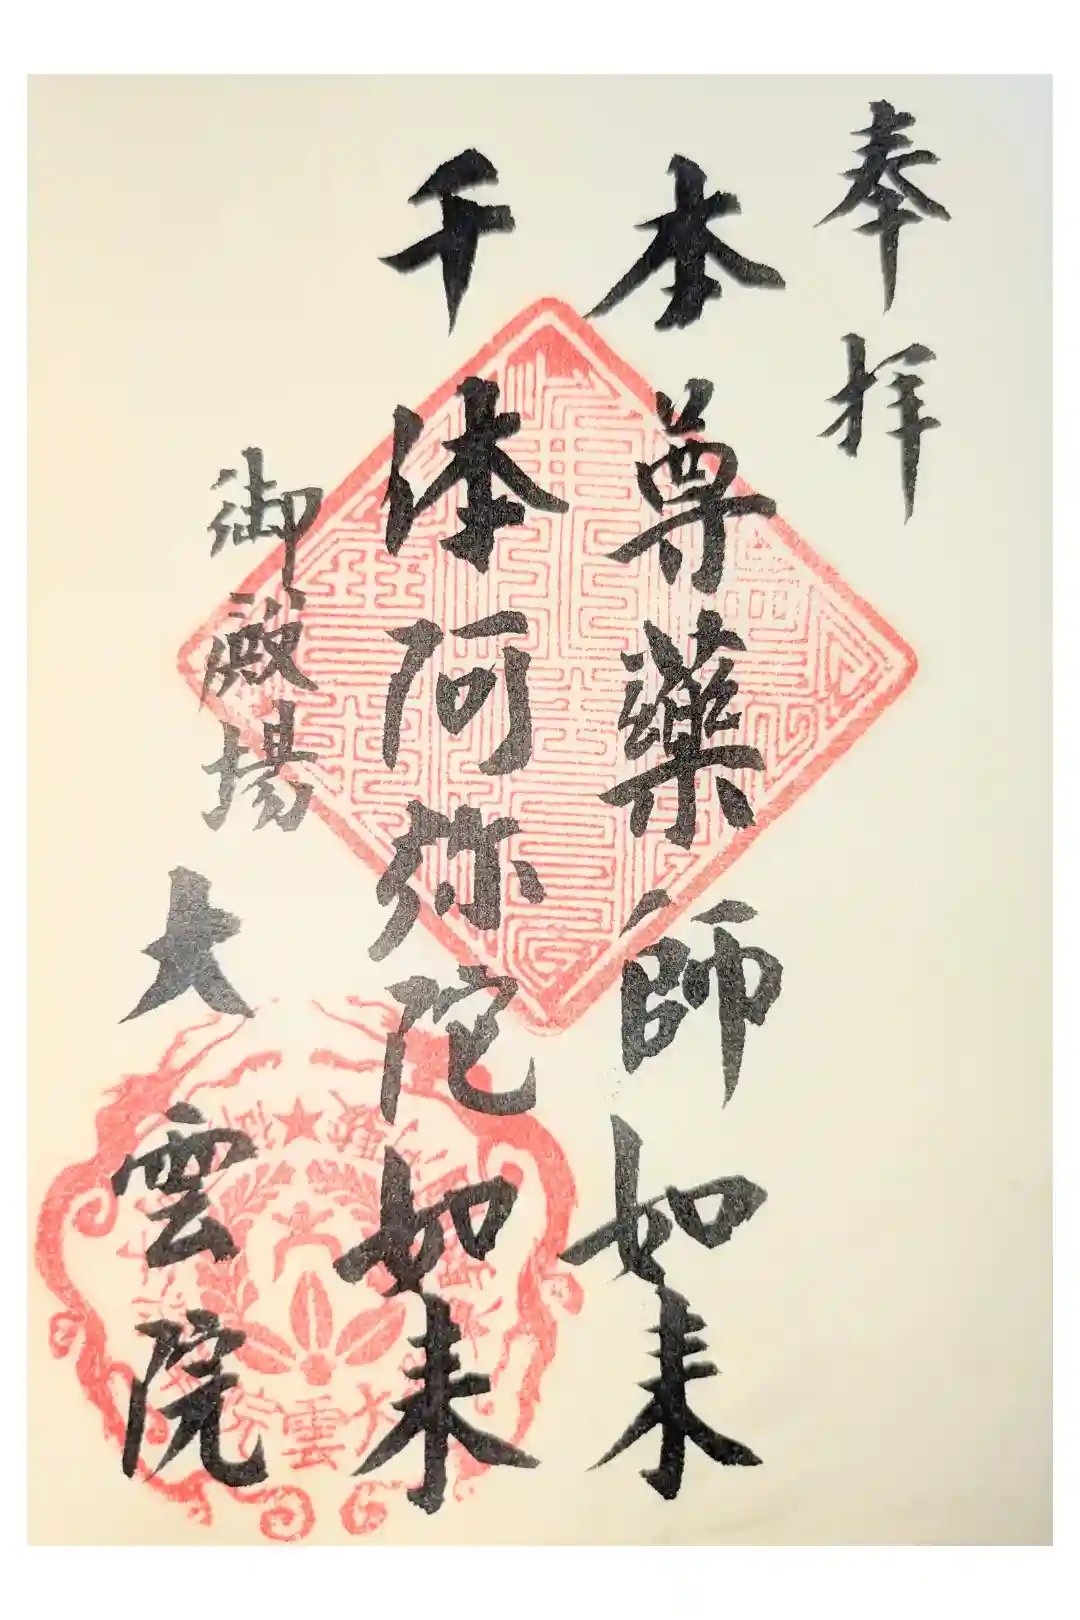 奉拝
本尊薬師如来
千体阿弥陀如来
御殿場
大雲院
大雲院